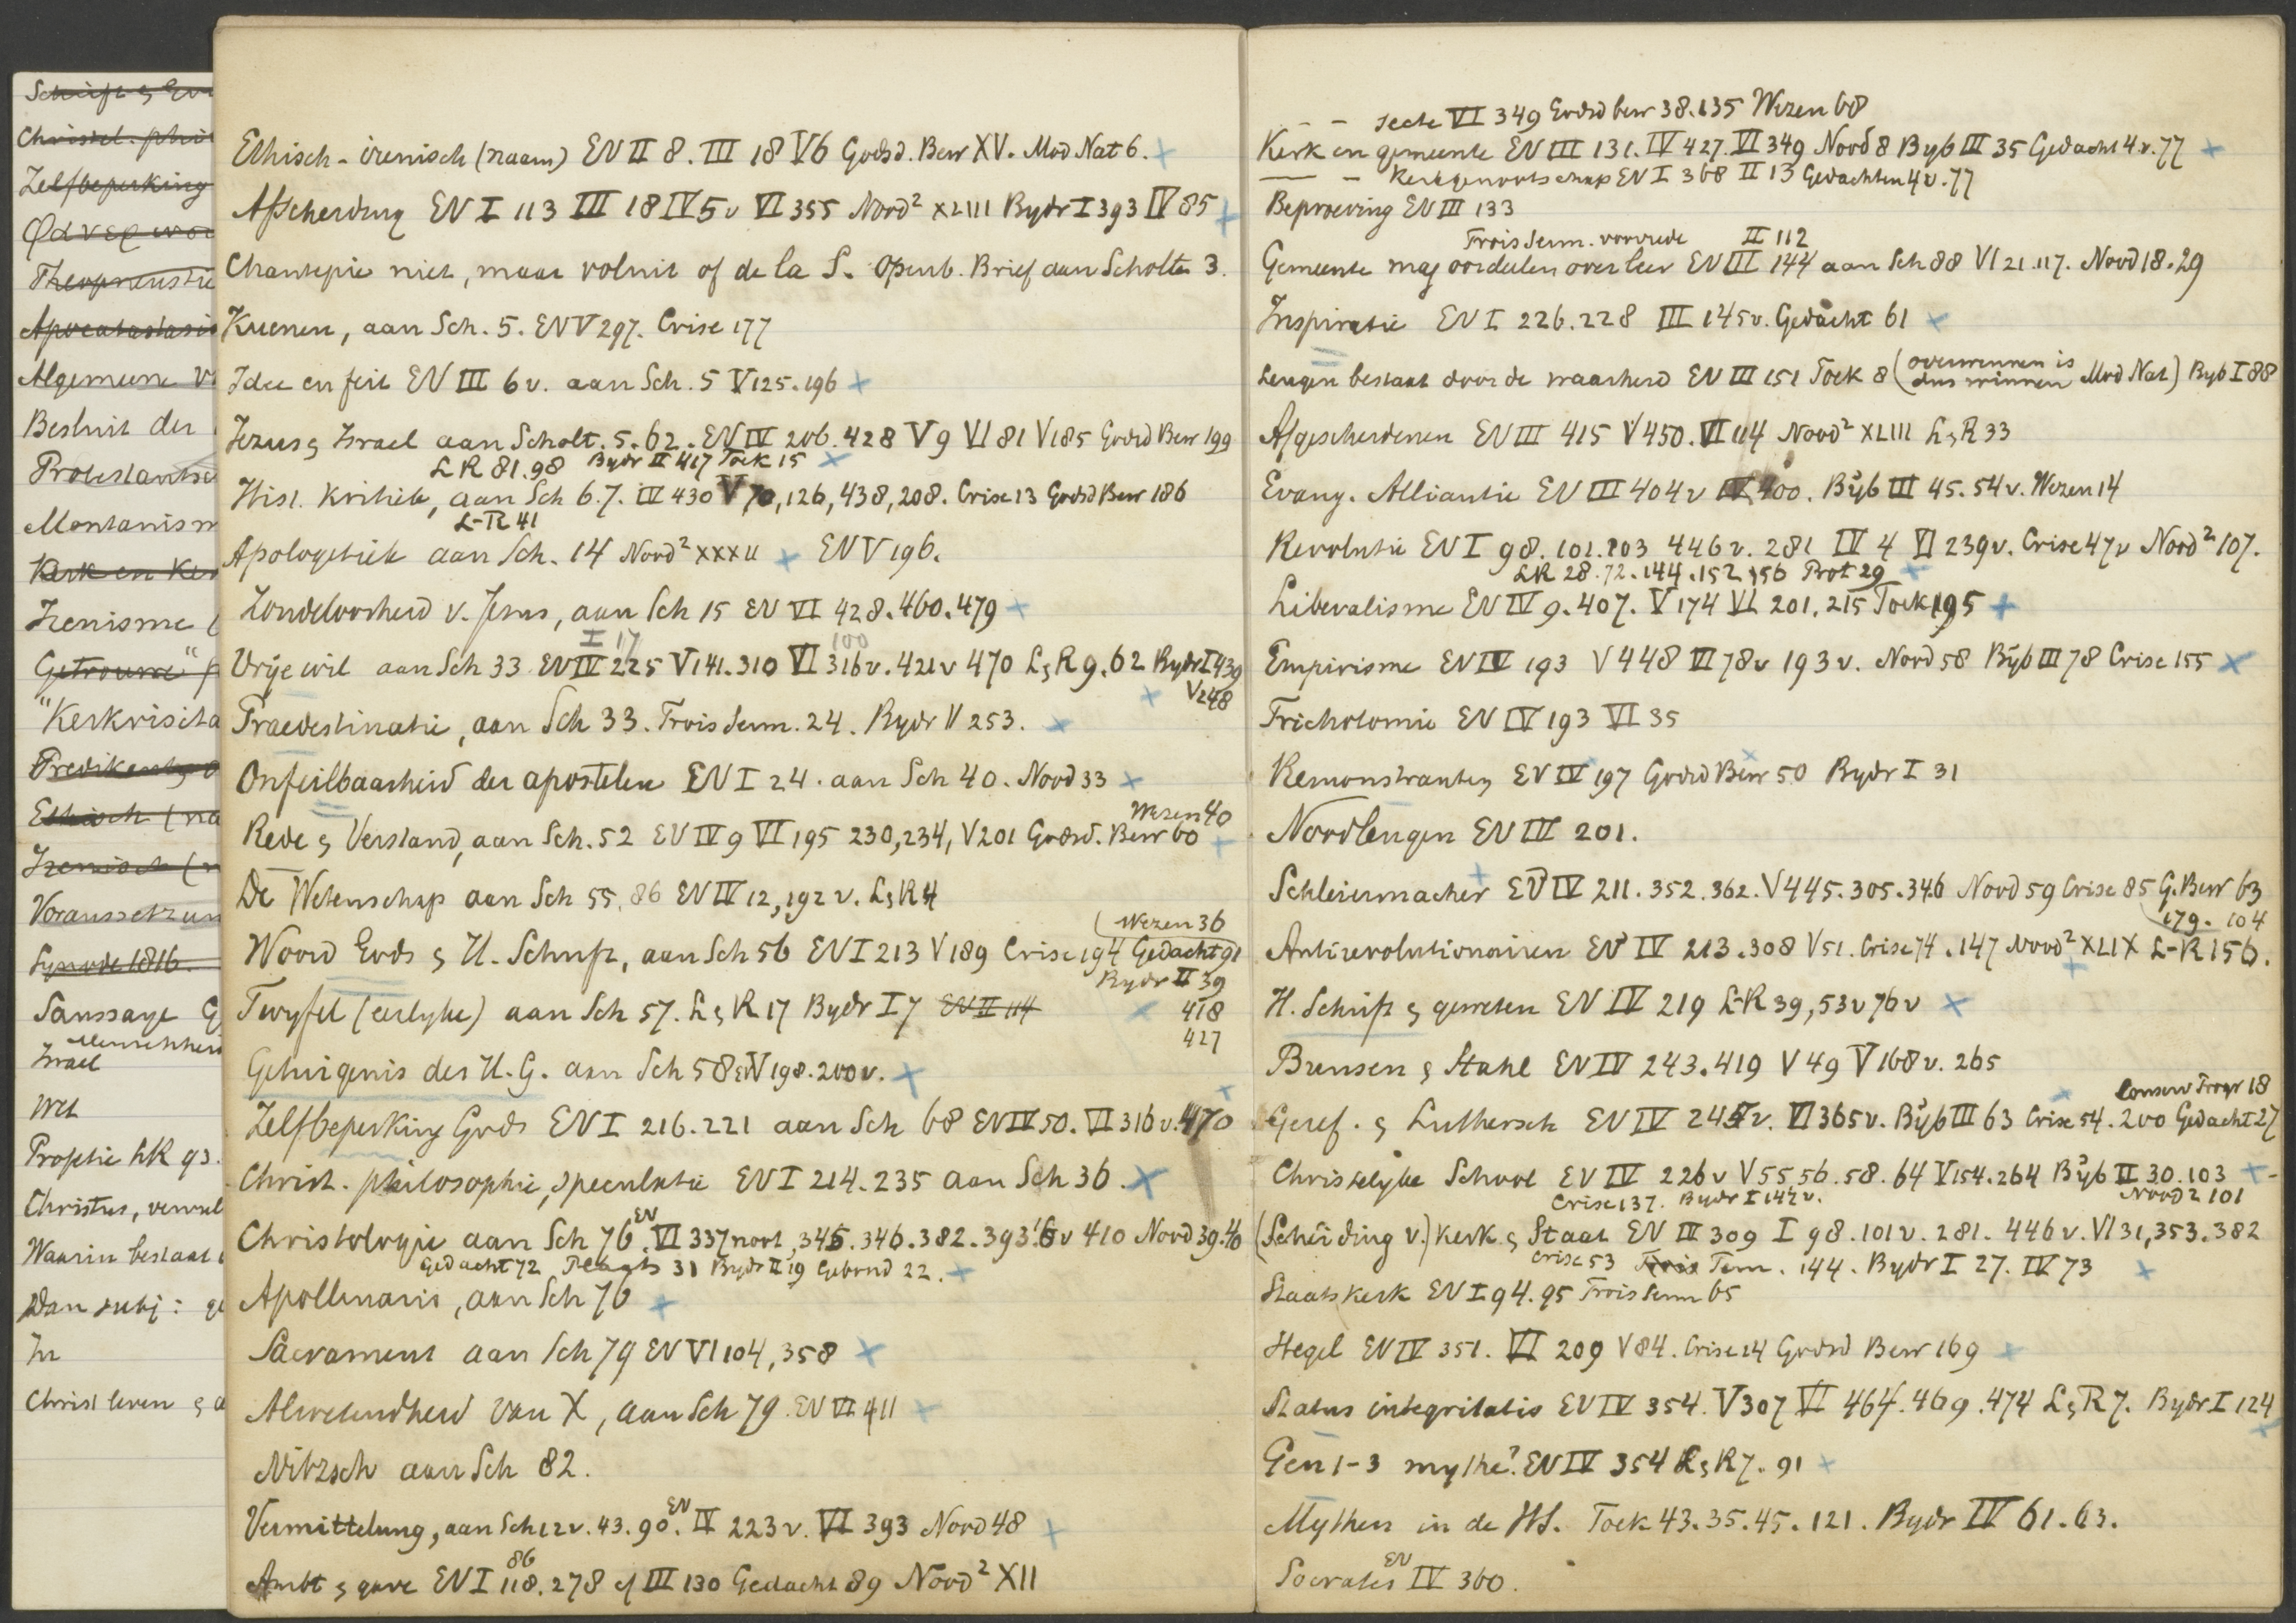 Schrift & Eva
Christel. phil
Zelfbeperking
Theopneustie
Apocatastasis
Algemeene V
Besluit der
Protestantsc
Montanism
Kerk en Ker
Irenisme (
Getrouwe" p
"Kerkvisita
Ethisch (na
Irenisch (n
Voraussetzun
Synode 1816.
Saussaye G
Israel
Wet
Christus, vervul
Waarin bestaat
Dan subj: ge
In
Christ leven &
Ethisch-irenisch (naam) EV II 8. III 18 V 6 Godsd. Bew XV. Mod Nat 6.
Afscheiding EV I 113 III 18 IV 5 v VI 355 Nood² XLIII Bydr I 393 IV 85
Chantepie niet, maar voluit of de la S. Openb. Brief aan Scholten 3.
Kuenen, aan Sch. 5. EV V 297. Crise 177
Idee en feit EV III 6 v. aan Sch. 5 V 125.196
Jezus & Israel aan Scholt. 5.62. EV IV 206.428 V 9 VI 81 V 185 Godsd Bew 199
LR 81.98 Bydr II 417 Toek 15
Hist. Kritiek, aan Sch 6.7. IV 430 V 70,126,438,208. Crise 13 Godsd Bew 186
L-R 41
Apologetiek aan Sch. 14 Nood² XXXII EV V 196.
Zondeloosheid v. Jesus, aan Sch 15 EV VI 428.460.479
I 17 100
Vrije wil aan Sch 33 EV IV 225 V 141.310 VI 316 v. 421 v 470 L & R 9.62 Bydr I 439
V 248
Praedestinatie, aan Sch 33. Trois Serm. 24. Bydr II 253.
Onfeilbaarheid der apostelen EV I 24. aan Sch 40. Nood 33
Wezen 40
Rede & Verstand, aan Sch. 52 EV IV 9 VI 195 230,234, V 201 Godsd. Bew 60
De Wetenschap aan Sch 55.86 EV IV 12,192 v. L & R 4
Wezen 36
Woord Gods & H. Schrift, aan Sch 56 EV I 213 V 189 Crise 194 Gedacht 91
Bydr II 39
Twyfel (eerlyke) aan Sch 57. L & R 17 Bydr I 7 EV II 114 418
427
Getuigenis des H.G. aan Sch 58 EV V 198.200 v.
Zelfbeperking Gods EV I 216.221 aan Sch 68 EV IV 50. VI 316 v. 470
Christ. philosophie, speculatie EV I 214.235 aan Sch 36.
Christologie aan Sch 76. EV VI 337 noot, 345.346.382.393 v 410 Nood 39.40
Gedacht 72 31 Bydr II 19 Gebond 22.
Apollinaris, aan Sch 76
Sacrament aan Sch 79 EV VI 104,358
Alwetendheid van X, aan Sch 79. EV VI 411
Nitzsch aan Sch 82.
Vermittelung, aan Sch 12 v. 43.90. EV IV 223 v. VI 393 Nood 48
86
Ambt & gave EV I 118.278 cf III 130 Gedacht 89 Nood² XII
— — secte VI 349 Godsd bew 38.135 Wezen 68
Kerk en gemeente EV III 131. IV 427. VI 349 Nood 8 Byb III 35 Gedacht 4 v. 77
— — Kerkgenootschap EV I 368 II 13 Gedachten 4 v. 77
Beproeving EV III 133
Trois Serm. voorrede II 112
Gemeente mag oordeelen over leer EV III 144 aan Sch 88 VI 21.117. Nood 18.29
Inspiratie EV I 226.228 III 145 v. Gedacht 61
Leugen bestaat door de waarheid EV III 151 Toek 8 (overwinnen is dus winnen Mod Nat) Byb I 88
Afgescheidenen EV III 415 V 450. VI 114 Nood² XLIII L & R 33
Evang. Alliantie EV III 404 v IV 400. Byb III 45.54 v. Wezen 14
Revolutie EV I 98.101.103 446 v. 281 IV 4 VI 239 v. Crise 47 v Nood² 107.
LR 28.72.144.152 156 Prot 29
Liberalisme EV IV 9.407. V 174 VI 201,215 Toek 195
Empirisme EV IV 193 V 448 VI 78 v 193 v. Nood 58 Byb III 78 Crise 155
Trichotomie EV IV 193 VI 35
Remonstranten EV IV 197 Godsd Bew 50 Bydr I 31
Noodleugen EV III 201.
Schleiermacher EV IV 211.352.362. V 445.305.346 Nood 59 Crise 85 G. Bew 63
179. 104
Antirevolutionairen EV IV 213.308 V 51. Crise 74.147 Nood² XLIX L-R 156.
H. Schrift & geweten EV IV 219 L-R 39,53 v 76 v
Bunsen & Stahl EV IV 243.419 V 49 V 168 v. 265
18
Geref. & Luthersch EV IV 245 v. VI 365 v. Byb III 63 Crise 54.200 Gedacht 27
Christelyke School EV IV 226 v V 55 56.58.64 V 154.264 Byb II 30.103
Crise 137. Bydr I 142 v. Nood² 101
(Scheiding v.) Kerk & Staat EV III 309 I 98.101 v. 281.446 v. VI 31,353.382
Crise 53 Trois Serm. 144. Bydr I 27. IV 73
Staatskerk EV I 94.95 Trois Serm 65
Hegel EV IV 351. VI 209 V 84. Crise 14 Godsd Bew 169
Status integritatis EV IV 354. V 307 VI 464.469.474 L & R 7. Bydr I 124
Gen 1-3 mythe? EV IV 354 L & R 7.91
Mythen in de HS. Toek 43.35.45.121. Bydr IV 61.63.
Socrates EV IV 360.